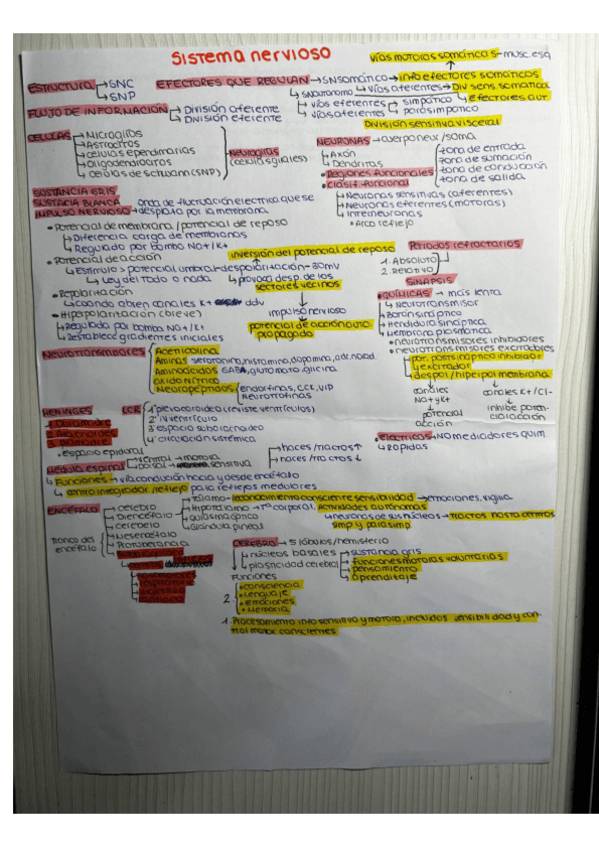 Sistema nervioso
vías motoras somáticas - musc. esq
ESTRUCTURA → SNC
→ SNP
EFECTORES QUE REGULAN → SN somático → info efectores somáticos
→ SN autónomo → vías aferentes → Div sens. somática
→ vías eferentes → simpático → efectores aut.
→ vías aferentes → parasimpático
División sensitiva visceral
FLUJO DE INFORMACIÓN → División aferente
→ División eferente
CÉLULAS → Microglias
→ Astrocitos
→ células ependimarias
→ oligodendrocitos
→ células de Schwann (SNP)
Neuroglias
(células gliales)
NEURONAS → cuerpo neur/soma
→ Axón
→ Dendritas
• Regiones funcionales
zona de entrada
zona de sumación
zona de conducción
zona de salida
• clasif. funcional
→ Neuronas sensitivas (aferentes)
→ Neuronas eferentes (motoras)
→ Interneuronas
• Arco reflejo
SUSTANCIA GRIS
SUSTACIA BLANCA
IMPULSO NERVIOSO → onda de fluctuación eléctrica que se
desplaza por la membrana
• Potencial de membrana / potencial de reposo
→ Diferencia carga de membranas
→ Regulado por bomba Na+/K+
• Potencial de acción
→ Estímulo > potencial umbral - despolarización - 30mV
→ Ley del todo o nada
→ provoca desp. de los
sectores vecinos
inversión del potencial de reposo
• Repolarización
→ cuando abren canales K+ ddv
• Hiperpolarización (breve)
→ Regulada por bomba Na+/K+
→ Restablece gradientes iniciales
impulso nervioso
potencial de acción auto-
propagado
Periodos refractarios
1. ABSOLUTO
2. RELATIVO
SINAPSIS
• QUÍMICAS → más lenta
→ Neurotransmisor
→ Botón sináptico
→ Hendidura sináptica
→ Membrana plasmática
• neurotransmisores inhibidores
• neurotransmisores excitadores
→ por. postsináptico inhibidor
y excitador
→ despol/hiperpol membrana
canales
Na+ y K+
potencial
acción
canales K+/Cl-
inhibe poten-
cial acción
• eléctricas → NO mediadores quím.
→ Rápidas
Neurotransmisores
Acetilcolina
Aminas serotonina, histamina, dopamina, adr, norad.
Aminoácidos GABA, glutamato, glicina
Óxido nítrico
Neuropéptidos → endorfinas, CCK, VIP
→ Neurotrofinas
MENINGES
1. Duramadre
2. Aracnoides
3. Piamadre
• espacio epidural
LCR
1º plexo coroideo (reviste ventrículos)
2º IV ventrículo
3º espacio subaracnoideo
4º circulación sistémica
Médula espinal → ventral → motora
→ dorsal → sensitiva
→ haces/tractos ↑
→ haces/tractos ↓
→ Funciones → vía conducción hacia y desde encéfalo
→ centro integrador/reflejo para reflejos medulares
ENCÉFALO → cerebro
→ Diencéfalo
→ cerebelo
→ Mesencéfalo
→ Protuberancia
Tronco del
encéfalo
→ Tálamo → reconocimiento consciente sensibilidad → emociones, vigilia
→ Hipotálamo → Tª corporal. Actividades autónomas
→ Quiasma óptico
→ Glándula pineal
→ neuronas de sus núcleos → tractos hasta centros
simp y parasimp
CEREBRO → 5 lóbulos/hemisferio
→ núcleos basales
→ plasticidad cerebral
sustancia gris
funciones motoras voluntarias
pensamiento
aprendizaje
Funciones
2.
• consciencia
• Lenguaje
• Emociones
• Memoria
1. Procesamiento info sensitiva y motora, incluidos sensibilidad y con-
trol motor conscientes